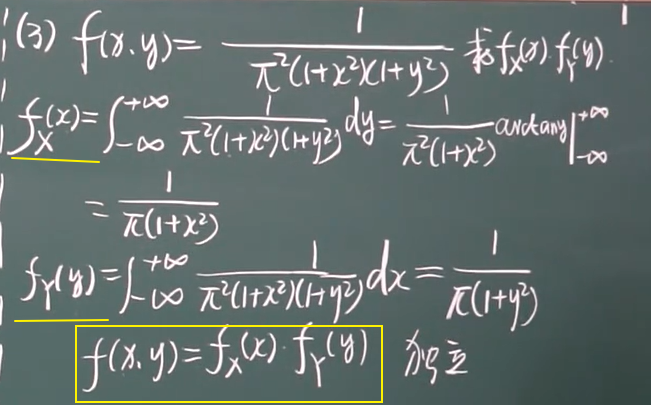 (3) f(x.y)= 1/(π²(1+x²)(1+y²)) 求f_X(x).f_Y(y)
f_X(x)=∫_{-∞}^{+∞} 1/(π²(1+x²)(1+y²)) dy= 1/(π²(1+x²)) arctany|_{-∞}^{+∞}
= 1/(π(1+x²))
f_Y(y)=∫_{-∞}^{+∞} 1/(π²(1+x²)(1+y²)) dx= 1/(π(1+y²))
f(x.y)=f_X(x)·f_Y(y) 独立